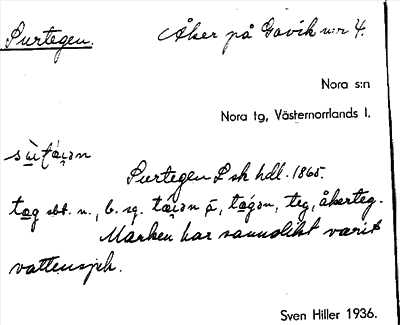 Surtegen. Åker på Gavik n:r 4.
Nora s:n
Nora tg, Västernorrlands l.
Surtegen L sk hdl. 1865.
sbt. n., b. sg. teg, åkerteg.
Marken har sannolikt varit
vattensjuk.
Sven Hiller 1936.